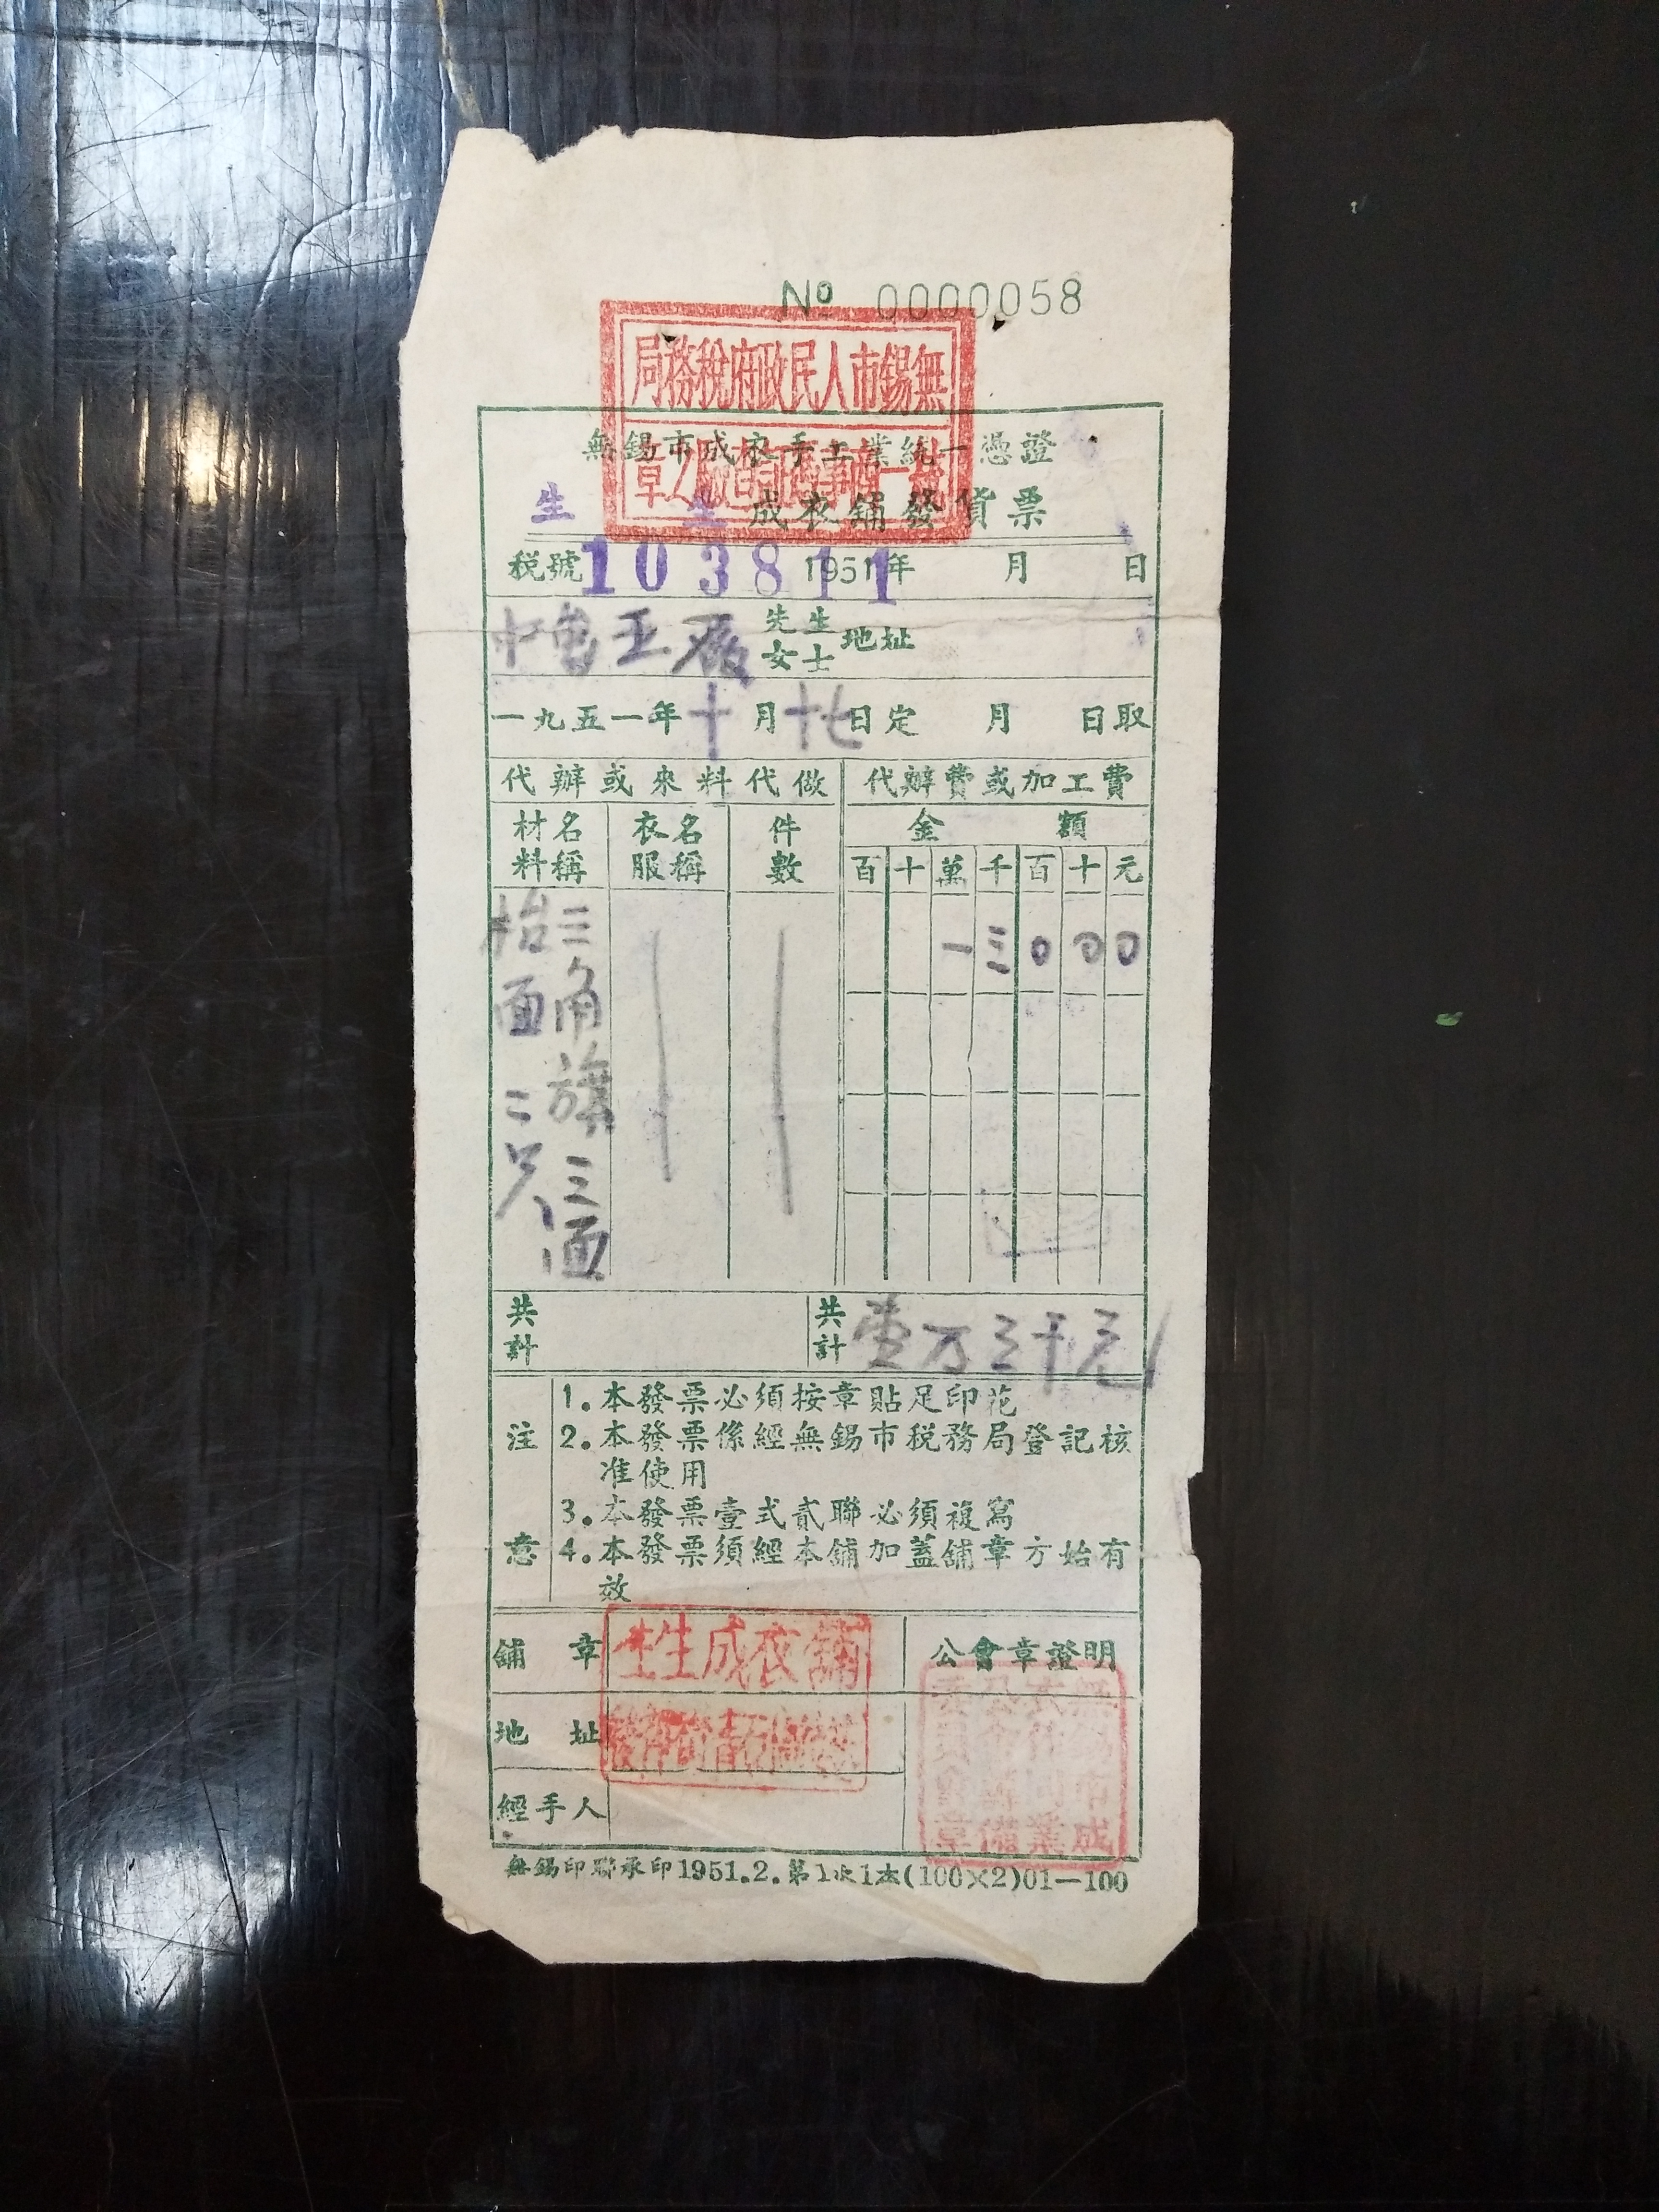 No 0000058
無錫市人民政府稅務局
章
無錫市成衣手工業統一憑證
生生成衣鋪發貨票
稅號103811 1951年 月 日
先生
女士
地址
一九五一年十月十七日定 月 日取
代辦或來料代做 代辦費或加工費
材料名稱 衣服名稱 件數 金額
百十萬千百十元
三角旗三面 一三000
抬面二只
共計 共計 壹万三千元
注意
1.本發票必須按章貼足印花
2.本發票係經無錫市稅務局登記核
准使用
3.本發票壹式貳聯必須複寫
4.本發票須經本鋪加蓋鋪章方始有
效
鋪章 生生成衣鋪 公會章證明
地址
經手人
無錫市成衣業同業公會籌備委員會章
無錫印聯承印1951.2.第1次1本(100×2)01—100